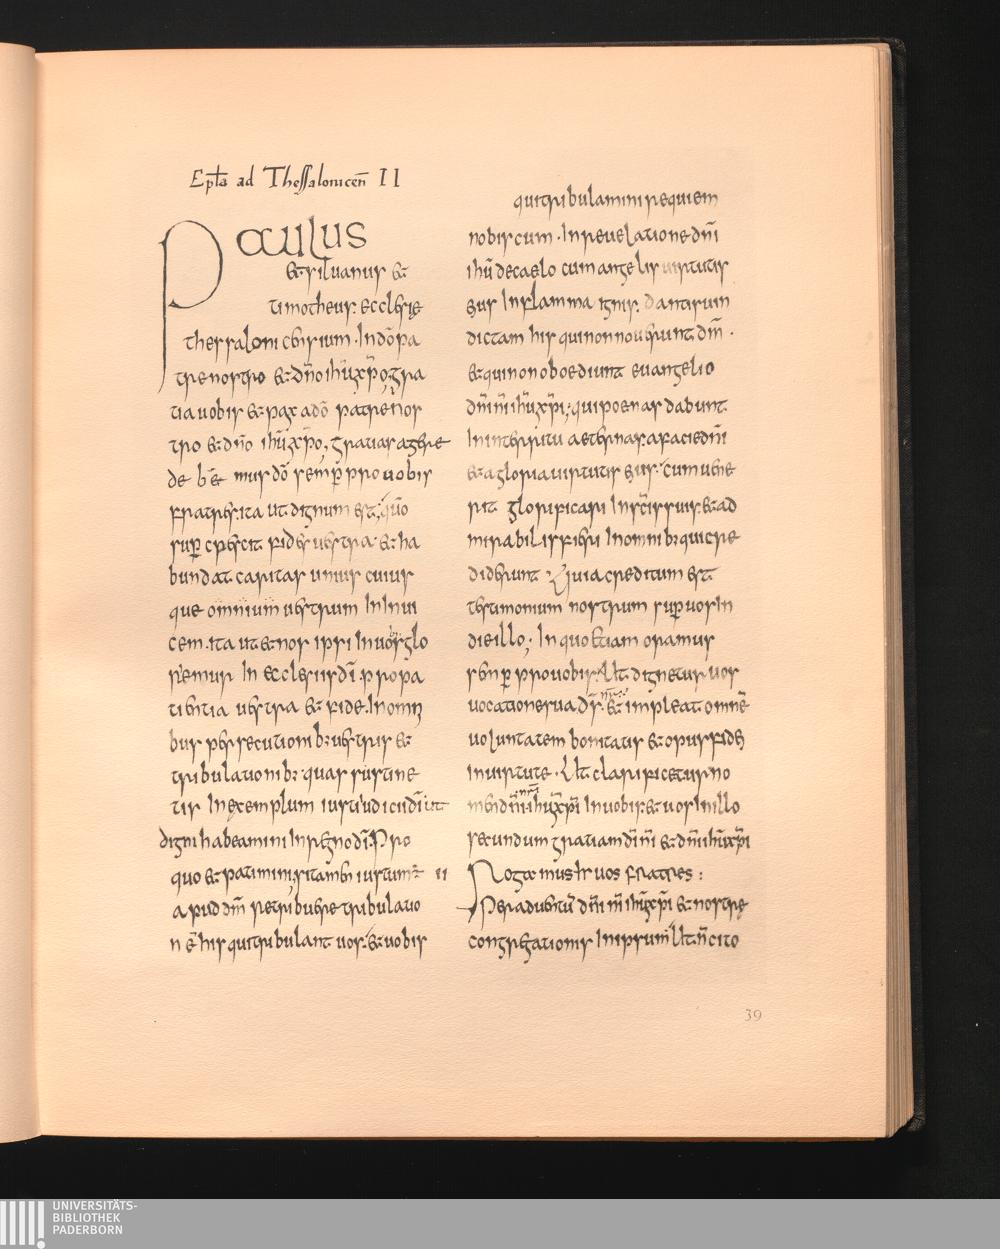 Ep̅la ad Thessalonicen̅ II
Paulus
& siluanus &
timotheus. ecclesię
thessalonicensium. In dō pa
tre nostro & dn̄o ihū xp̄o, gra
tia uobis & pax a dō patre nos
tro & dn̄o ihū xp̄o, gratias agere
de b& mus dō semp̄ pro uobis
fratres. ita ut dignum est, quō
sup̄ crescit fides uestra & ha
bundat caritas unius cuius
que omnium uestrum In Inui
cem. ita ut & nos ipsi In uobis glo
riemur In ecclesiis dī. pro pa
tientia uestra & fide. In omni
bus persecutionib: uestris &
tribulationib: quas sustine
tis In exemplum iusti iudicii dī ut
digni habeamini In regno dī. Pro
quo & patimini, si tamen iustum ē
II
apud dm̄ retribuere tribulatio
nē his qui tribulant uos. & uobis
qui tribulamini requiem
nobiscum. In reuelatione dn̄i
ihū de caelo cum angelis uirtutis
eius In flamma ignis. dantis uin
dictam his qui non nouerunt dm̄.
& qui non oboediunt euangelio
dn̄i n̄i ihū xp̄i; qui poenas dabunt
In interitu aeternas a facie dn̄i
& a gloria uirtutis eius. cum uene
rit glorificari In sc̄is suis. & ad
mirabilis fieri In omnib: qui cre
diderunt Quia creditum est
testimonium nostrum sup̄ uos In
die illo; In quo etiam oramus
semp̄ pro uobis. Ut dignetur uos
uocatione sua ds̄ nr̄. & impleat omnē
uoluntatem bonitatis & opus fidei
In uirtute. Ut clarificetur no
men dn̄i nr̄i ihū xp̄i In uobis. & uos In illo
secundum gratiam dī n̄i & dn̄i ihū xp̄i
Rogamus hr uos fratres:
Per aduentū dn̄i n̄i ihū xp̄i & nostrę
congregationis In ipsum Ut n̄ cito
39
UNIVERSITÄTS-
BIBLIOTHEK
PADERBORN